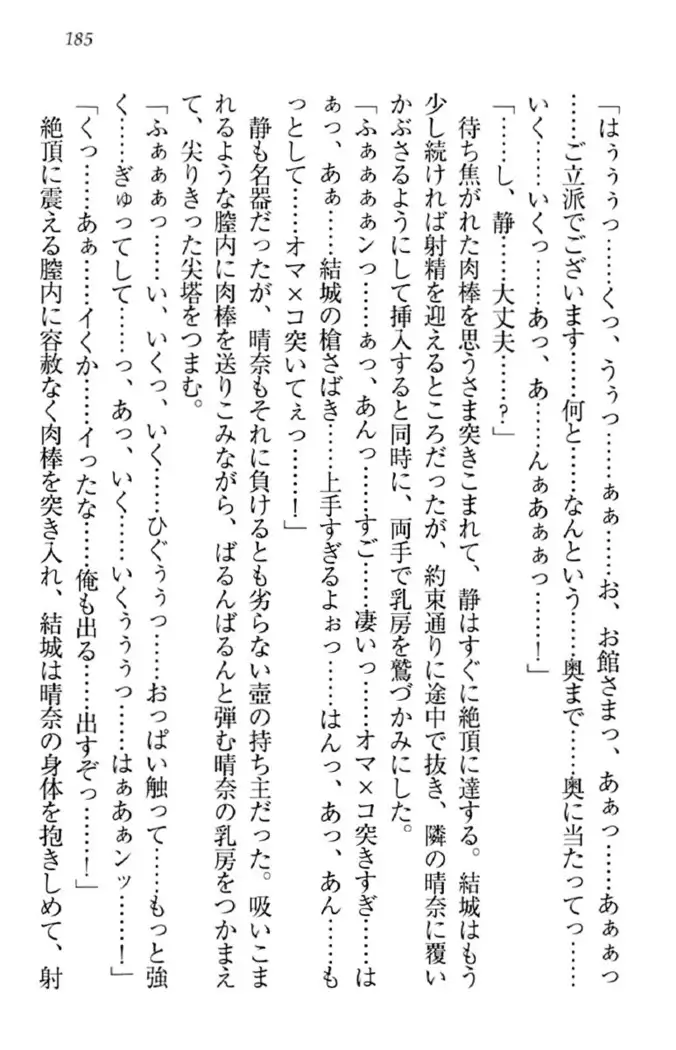 185
「はぅぅぅっ……くっ、うぅっ……ぁぁ……お、お館さまっ、あぁっ……あぁぁっ
……ご立派でございます……何と……なんという……奥まで……奥に当たってっ……
いく……いくっ……あっ、あ……んぁあぁぁっ……！」
「……し、静……大丈夫……？」
　待ち焦がれた肉棒を思うさま突きこまれて、静はすぐに絶頂に達する。結城はもう
少し続ければ射精を迎えるところだったが、約束通りに途中で抜き、隣の晴奈に覆い
かぶさるようにして挿入すると同時に、両手で乳房を鷲づかみにした。
「ふぁぁぁぁンっ……ぁっ、あんっ……すご……凄いっ……オマ×コ突きすぎ……は
ぁっ、あぁ……結城の槍さばき……上手すぎるよぉっ……はんっ、あっ、あん……も
っとして……オマ×コ突いてぇっ……！」
　静も名器だったが、晴奈もそれに負けるとも劣らない壺の持ち主だった。吸いこま
れるような膣内に肉棒を送りこみながら、ばるんばるんと弾む晴奈の乳房をつかまえ
て、尖りきった尖塔をつまむ。
「ふぁぁぁっ……い、いくっ、いく……ひぐぅぅっ……おっぱい触って……もっと強
く……ぎゅってして……っ、あっ、いく……いくぅぅぅっ……はぁあぁンッ……！」
「くっ……あぁ……イくか……イったな……俺も出る……出すぞっ……！」
　絶頂に震える膣内に容赦なく肉棒を突き入れ、結城は晴奈の身体を抱きしめて、射